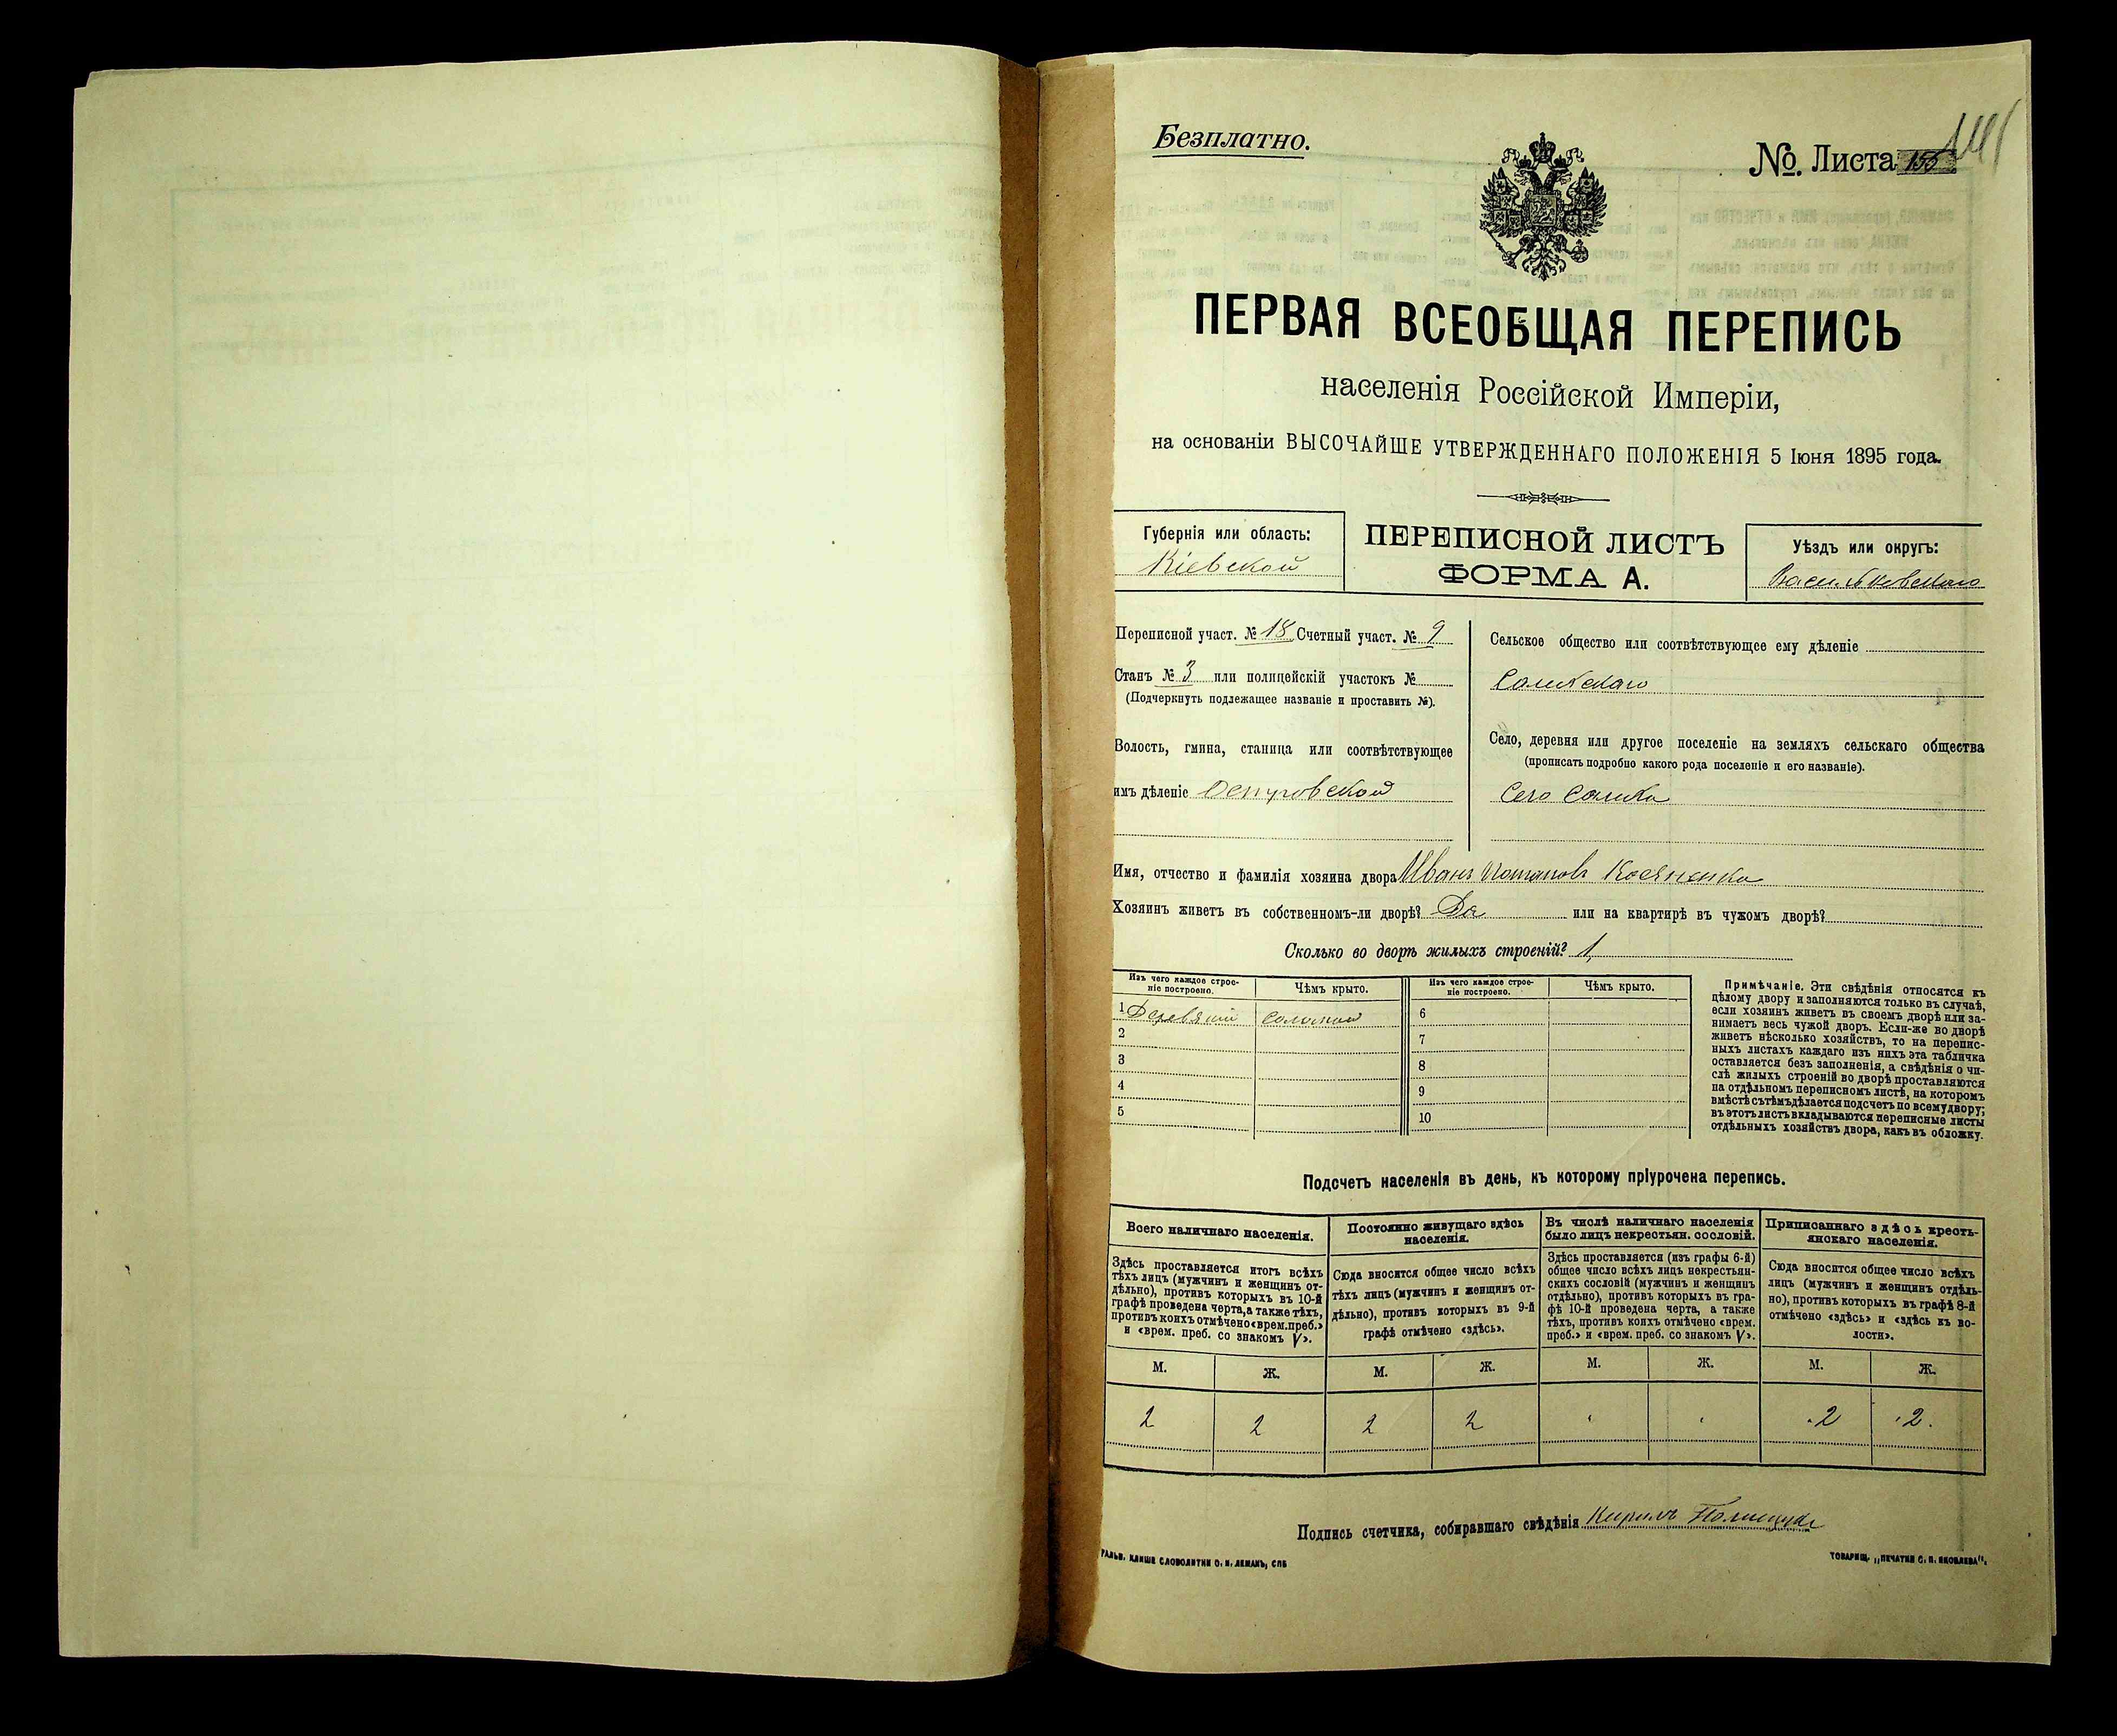 Безплатно.
№. Листа 156
ПЕРВАЯ ВСЕОБЩАЯ ПЕРЕПИСЬ
населенія Россійской Имперіи,
на основаніи ВЫСОЧАЙШЕ УТВЕРЖДЕННАГО ПОЛОЖЕНІЯ 5 Іюня 1895 года.
Губернія или область:
Кіевской
ПЕРЕПИСНОЙ ЛИСТЪ
ФОРМА А.
Уѣздъ или округъ:
Васильковскаго
Переписной участ. № 18 Счетный участ. № 9
Станъ № 3 или полицейскій участокъ №
(Подчеркнуть подлежащее названіе и проставить №).
Волость, гмина, станица или соотвѣтствующее
имъ дѣленіе Островской
Сельское общество или соотвѣтствующее ему дѣленіе
Село, деревня или другое поселеніе на земляхъ сельскаго общества
(прописать подробно какого рода поселеніе и его названіе).
Село
Имя, отчество и фамилія хозяина двора Иванъ Потаповъ Косяненко
Хозяинъ живетъ въ собственномъ-ли дворѣ? Да или на квартирѣ въ чужомъ дворѣ?
Сколько во дворѣ жилыхъ строеній? 1,
Изъ чего каждое строе-
ніе построено.
Чѣмъ крыто.
Изъ чего каждое строе-
ніе построено.
Чѣмъ крыто.
1 соломой
2
3
4
5
6
7
8
9
10
Примѣчаніе. Эти свѣдѣнія относятся къ
цѣлому двору и заполняются только въ случаѣ,
если хозяинъ живетъ въ своемъ дворѣ или за-
нимаетъ весь чужой дворъ. Если-же во дворѣ
живетъ нѣсколько хозяйствъ, то на перепис-
ныхъ листахъ каждаго изъ нихъ эта табличка
оставляется безъ заполненія, а свѣдѣнія о чи-
слѣ жилыхъ строеній во дворѣ проставляются
на отдѣльномъ переписномъ листѣ, на которомъ
вмѣстѣ съ тѣмъ дѣлается подсчетъ по всему двору;
въ этотъ листъ вкладываются переписные листы
отдѣльныхъ хозяйствъ двора, какъ въ обложку.
Подсчетъ населенія въ день, къ которому пріурочена перепись.
Всего наличнаго населенія.
Здѣсь проставляется итогъ всѣхъ
тѣхъ лицъ (мужчинъ и женщинъ от-
дѣльно), противъ которыхъ въ 10-й
графѣ проведена черта, а также тѣхъ,
противъ коихъ отмѣчено «врем. преб.»
и «врем. преб. со знакомъ V».
Постоянно живущаго здѣсь
населенія.
Сюда вносится общее число всѣхъ
тѣхъ лицъ (мужчинъ и женщинъ от-
дѣльно), противъ которыхъ въ 9-й
графѣ отмѣчено «здѣсь».
Въ числѣ наличнаго населенія
было лицъ некрестьян. сословій.
Здѣсь проставляется (изъ графы 6-й)
общее число всѣхъ лицъ некрестьян-
скихъ сословій (мужчинъ и женщинъ
отдѣльно), противъ которыхъ въ гра-
фѣ 10-й проведена черта, а также
тѣхъ, противъ коихъ отмѣчено «врем.
преб.» и «врем. преб. со знакомъ V».
Приписаннаго здѣсь кресть-
янскаго населенія.
Сюда вносится общее число всѣхъ
лицъ (мужчинъ и женщинъ отдѣль-
но), противъ которыхъ въ графѣ 8-й
отмѣчено «здѣсь» и «здѣсь къ во-
лости».
М. Ж. М. Ж. М. Ж. М. Ж.
2 2 2 2 2 2.
Подпись счетчика, собиравшаго свѣдѣнія Кирилъ
РАЛЬВ. КЛИШЕ СЛОВОЛИТНИ О. И. ЛЕМАНЪ, СПБ
ТОВАРИЩ. „ПЕЧАТНИ С. П. ЯКОВЛЕВА“.